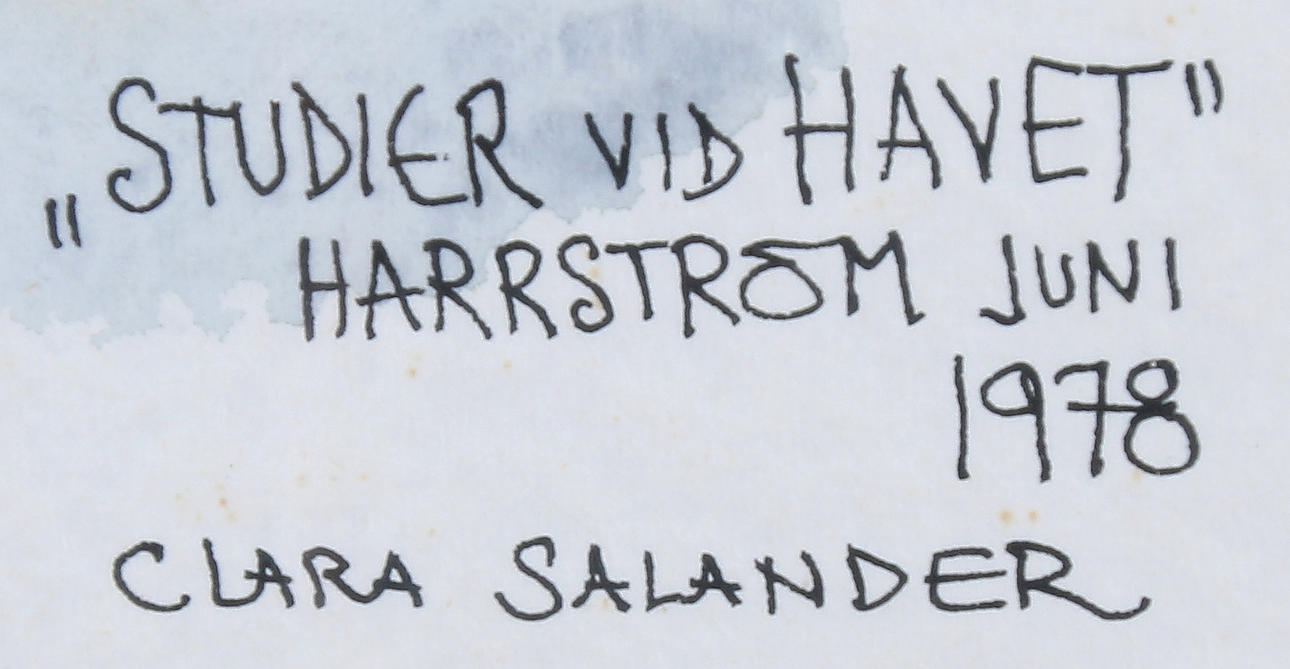 „STUDIER VID HAVET”
HARRSTRÖM JUNI
1978
CLARA SALANDER